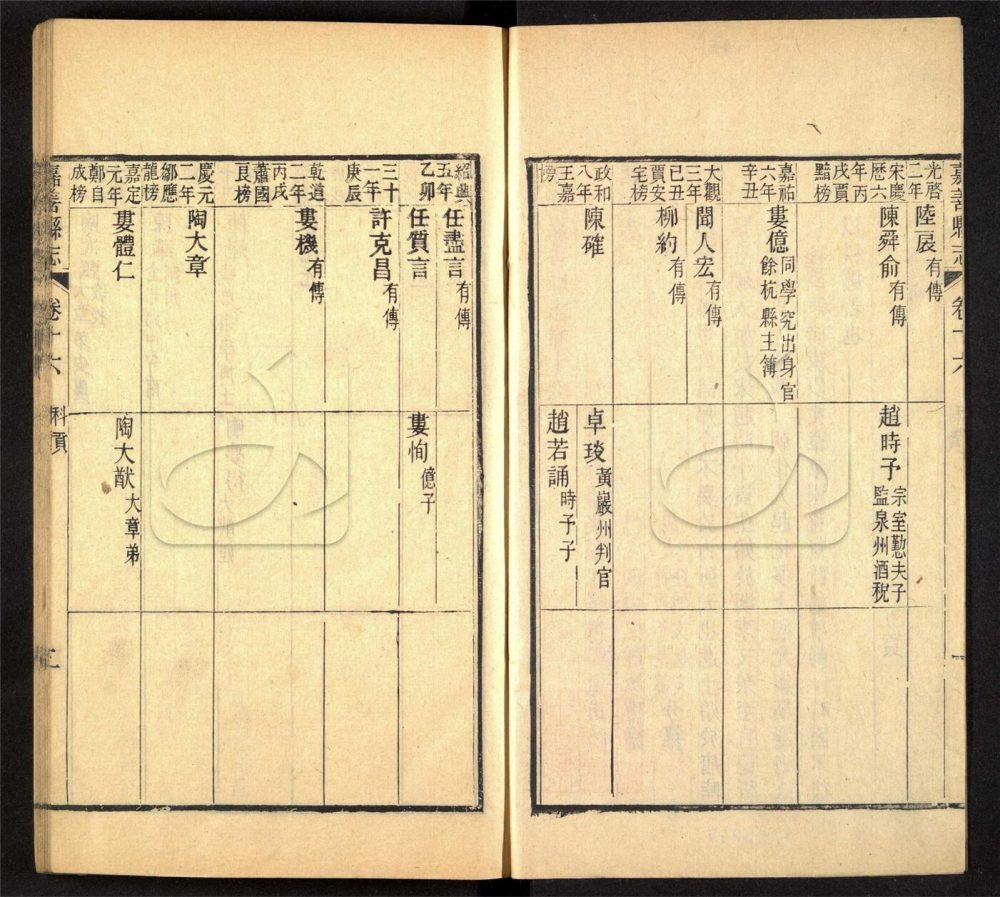 嘉善縣志 卷十六 一
光啓二年 陸扆 有傳
宋慶厯六年丙戌賈黯榜 陳舜俞 有傳
嘉祐六年辛丑 婁億 同學究出身官餘杭縣主簿
大觀三年己丑賈安宅榜 聞人宏 有傳
柳約 有傳
政和八年王嘉榜 陳確
趙時予 宗室懃夫子監泉州酒稅
卓琰 黃巖州判官
趙若誦 時予子
紹興五年乙卯 任盡言 有傳
任質言
三十一年庚辰 許克昌 有傳
乾道二年丙戌蕭國良榜 婁機 有傳
慶元二年鄒應龍榜 陶大章
嘉定元年鄭自成榜 婁體仁
婁恂 億子
陶大猷 大章弟
嘉善縣志 卷十六 科貢 二